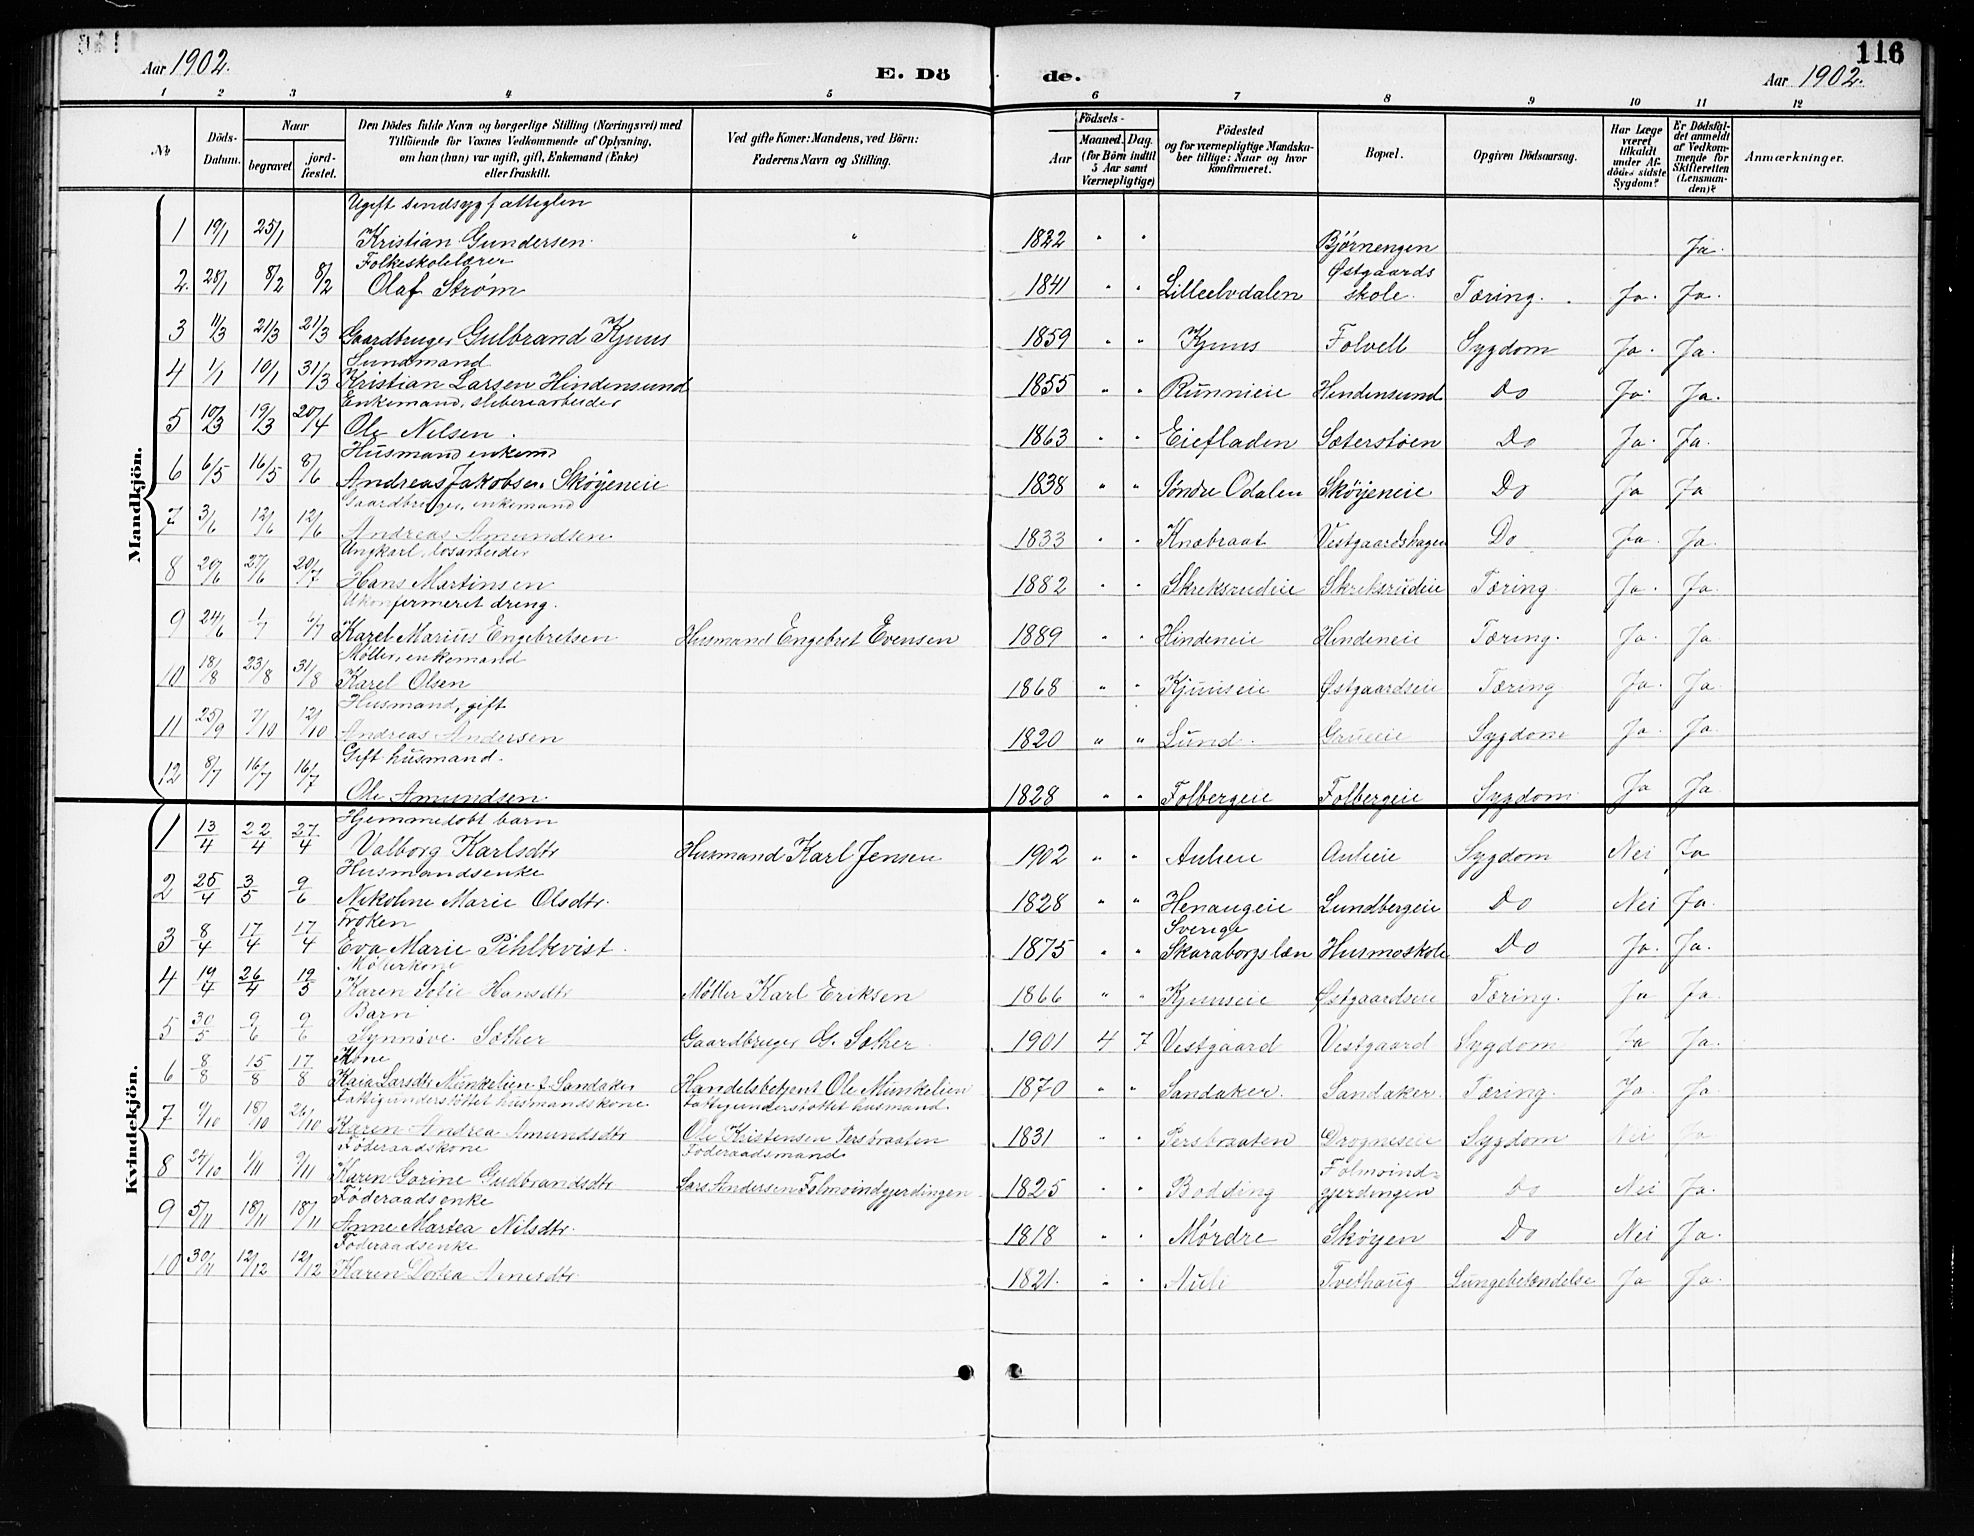 116
Aar 1902.
E. Dö
de.
Aar 1902.
1 2 3 4 5 6 7 8 9 10 11 12
№
Döds-Datum.
Naar
begravet
jordfæstet.
Den Dödes fulde Navn og borgerlige Stilling (Næringsvei) med
Tilföiende for Voxnes Vedkommende af Oplysning,
om han (hun) var ugift, gift, Enkemand (Enke)
eller fraskilt.
Ved gifte Koner: Mandens, ved Börn:
Faderens Navn og Stilling.
Födsels-
Aar
Maaned.
Dag.
(for Börn indtil
5 Aar samt
Værnepligtige)
Födested
og for værnepligtige Mandska-
ber tillige: Naar og hvor
konfirmeret.
Bopæl.
Opgiven Dödsaarsag.
Har Læge
været
tilkaldt
under Af-
dödes sidste
Sygdom?
Er Dödsfal-
det anmeldt
af Vedkom-
mende for
Skifteretten
(Lensman-
den)?
Anmærkninger.
Mandkjön.
Ugift sindsyg fattiglem
1 19/1 25/1 Kristian Gundersen " 1822 " " Bjørnengen Ja.
Folkeskolelærer Østgaards
2. 28/1 8/2 8/2 Olaf Strøm 1841 " " Lilleelvdalen skole. Tæring. Ja. Ja.
3 11/3 21/3 21/3 Gaardbruger Gulbrand Kjuus 1859 " " Kjuus Folvell Sygdom Ja. Ja.
Sundmand
4 1/1 10/1 31/3 Kristian Larsen Hindensund 1855 " " Runnieie Hindensund Do Ja. Ja.
Enkemand, sliberiarbeider
5 10/3 19/3 20/4 Ole Nilsen. 1863 " " Eiefladen Sæterstøen Do Ja. Ja.
Husmand enkem
6 6/5 16/5 8/6 Andreas Jakobsen Skøyeneie 1838 " " Søndre Odalen Skøyeneie Do Ja Ja
Gaardbruger, enkemand
7 3/6 12/6 12/6 Andreas Amundsen. 1833 " " Knæbraat Vestgaardshagen Do Ja. Ja.
Ungkarl, løsarbeider
8 20/6 27/6 20/7 Hans Martinsen 1882 " " Skreksrudeie Skreksrudeie Tæring Ja. Ja.
Ukonfermeret dreng.
9 24/6 1/7 /7 Karel Marius Engebretsen Husmand Engebret Evensen 1889 " " Hindeneie Hindeneie Tæring. Ja. Ja
Møller, enkemand
10 18/8 23/8 31/8 Karel Olsen 1868 " " Kjuuseie Østgaardseie Tæring Ja. Ja.
Husmand, gift
11 25/9 7/10 12/10 Andreas Andersen 1820 " " Lund. Grueeie Sygdom Ja. Ja.
Gift husmand.
12 8/7 16/7 16/7 Ole Amundsen. 1828 " " Folbergeie Folbergeie Sygdom Ja Ja
Kvindekjön.
Hjemmedøbt barn
1 13/4 22/4 27/4 Valborg Karlsdtr Husmand Karl Jensen 1902 " " Aulieie Aulieie Sygdom Nei Ja
Husmandsenke
2 25/4 3/5 9/6 Nikoline Marie Olsdtr. 1828 " " Henaugeie Lundbergeie Do Nei Ja.
Frøken Sverige
3 8/4 17/4 17/4 Eva Marie Pihlkvist. 1875 " " Skaraborgs læn Husmoskole Do Ja. Ja.
Møllerkone
4 19/4 26/4 19/5 Karen Sofie Hansdtr Møller Karl Eriksen 1866 " " Kjuuseie Østgaardseie Tæring. Ja Ja.
Barn
5 30/5 9/6 9/6 Synnøve Sæther Gaardbruger G. Sæther. 1901 4 7 Vestgaard Vestgaard Sygdom Ja Ja.
Kone
6 8/8 15/8 17/8 Kaia Larsdtr Munkelien f. Sandaker Handelsbetjent Ole Munkelien 1870 " " Sandaker. Sandaker. Tæring. Ja. Ja.
Fattigunderstøttet husmandskone Fattigunderstøttet husmand.
7 9/10 18/10 26/10 Karen Andrea Amundsdtr Ole Kristensen Persbraaten 1831 " " Persbraaten Drogneseie Sygdom Nei Ja
Føderaadskone Føderaadsmand Folmoind-
8 24/10 1/11 9/11 Karen Gorine Gudbrandsdtr Lars Andersen Folmoindgjerdingen 1825 " " Bodding gjerdingen Do Nei Ja.
Føderaadsenke
9 5/11 18/11 18/11 Anne Martea Nilsdtr. 1818 " " Mørdre Skøyen Do Nei Ja.
Føderaadsenke
10 30/11 12/12 12/12 Karen Dortea Arnesdtr 1821. " " Auli Tvethaug Lungebetændelse Ja Ja.